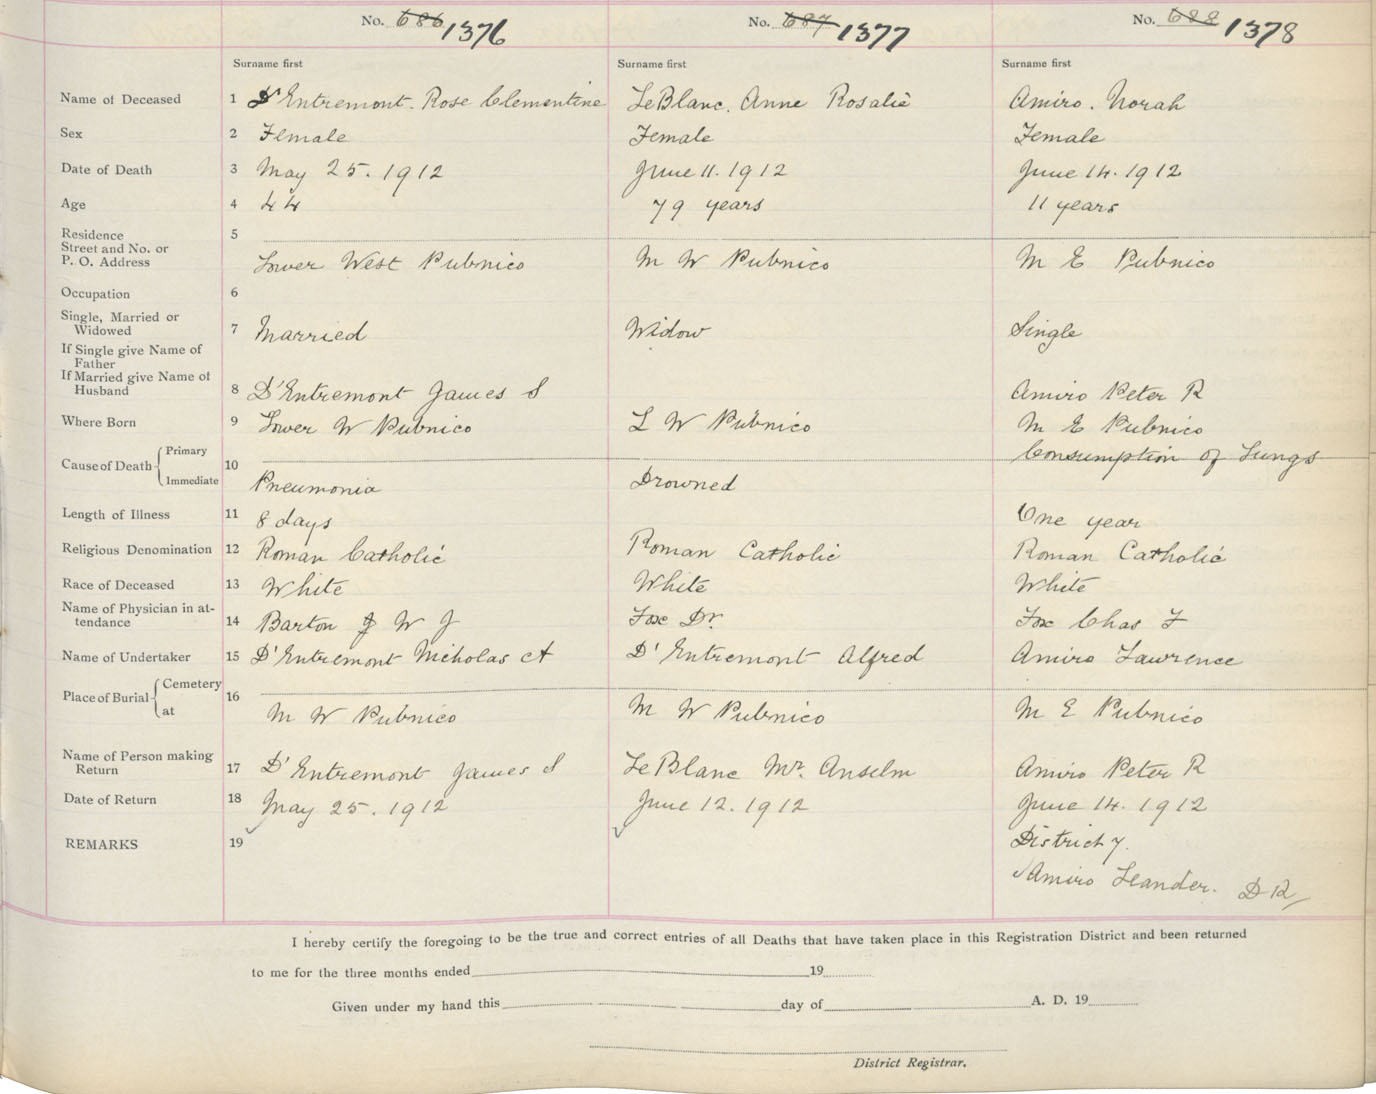 No. 686 1376 No. 687 1377 No. 688 1378
Surname first Surname first Surname first
Name of Deceased 1 D'Entremont. Rose Clementine LeBlanc. Anne Rosalie Amiro. Norah
Sex 2 Female Female Female
Date of Death 3 May 25. 1912 June 11. 1912 June 14. 1912
Age 4 44 79 years 11 years
Residence 5
Street and No. or
P. O. Address Lower West Pubnico M W Pubnico M E Pubnico
Occupation 6
Single, Married or
Widowed 7 Married Widow Single
If Single give Name of
Father
If Married give Name of
Husband 8 D'Entremont James S Amiro Peter R
Where Born 9 Lower W Pubnico L W Pubnico M E Pubnico
Cause of Death Primary 10 Consumption of Lungs
Immediate Pneumonia Drowned
Length of Illness 11 8 days One year
Religious Denomination 12 Roman Catholic Roman Catholic Roman Catholic
Race of Deceased 13 White White White
Name of Physician in at-
tendance 14 Barton J W J Fox Dr. Fox Chas F
Name of Undertaker 15 D'Entremont Nicholas A D'Entremont Alfred Amiro Lawrence
Place of Burial Cemetery 16
at M W Pubnico M W Pubnico M E Pubnico
Name of Person making
Return 17 D'Entremont James S LeBlanc Mr. Anselm Amiro Peter R
Date of Return 18 May 25. 1912 June 12. 1912 June 14. 1912
REMARKS 19 District 7.
Amiro Leander. D R
I hereby certify the foregoing to be the true and correct entries of all Deaths that have taken place in this Registration District and been returned
to me for the three months ended 19
Given under my hand this day of A. D. 19
District Registrar.